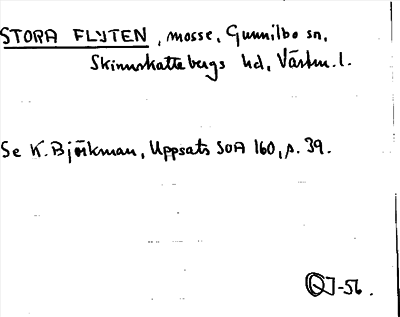 STORA FLYTEN, mosse, Gunnilbo sn,
Skinnskattebergs hd, Västm. l.
Se K. Björkman, Uppsats SOA 160, s. 39.
-56.